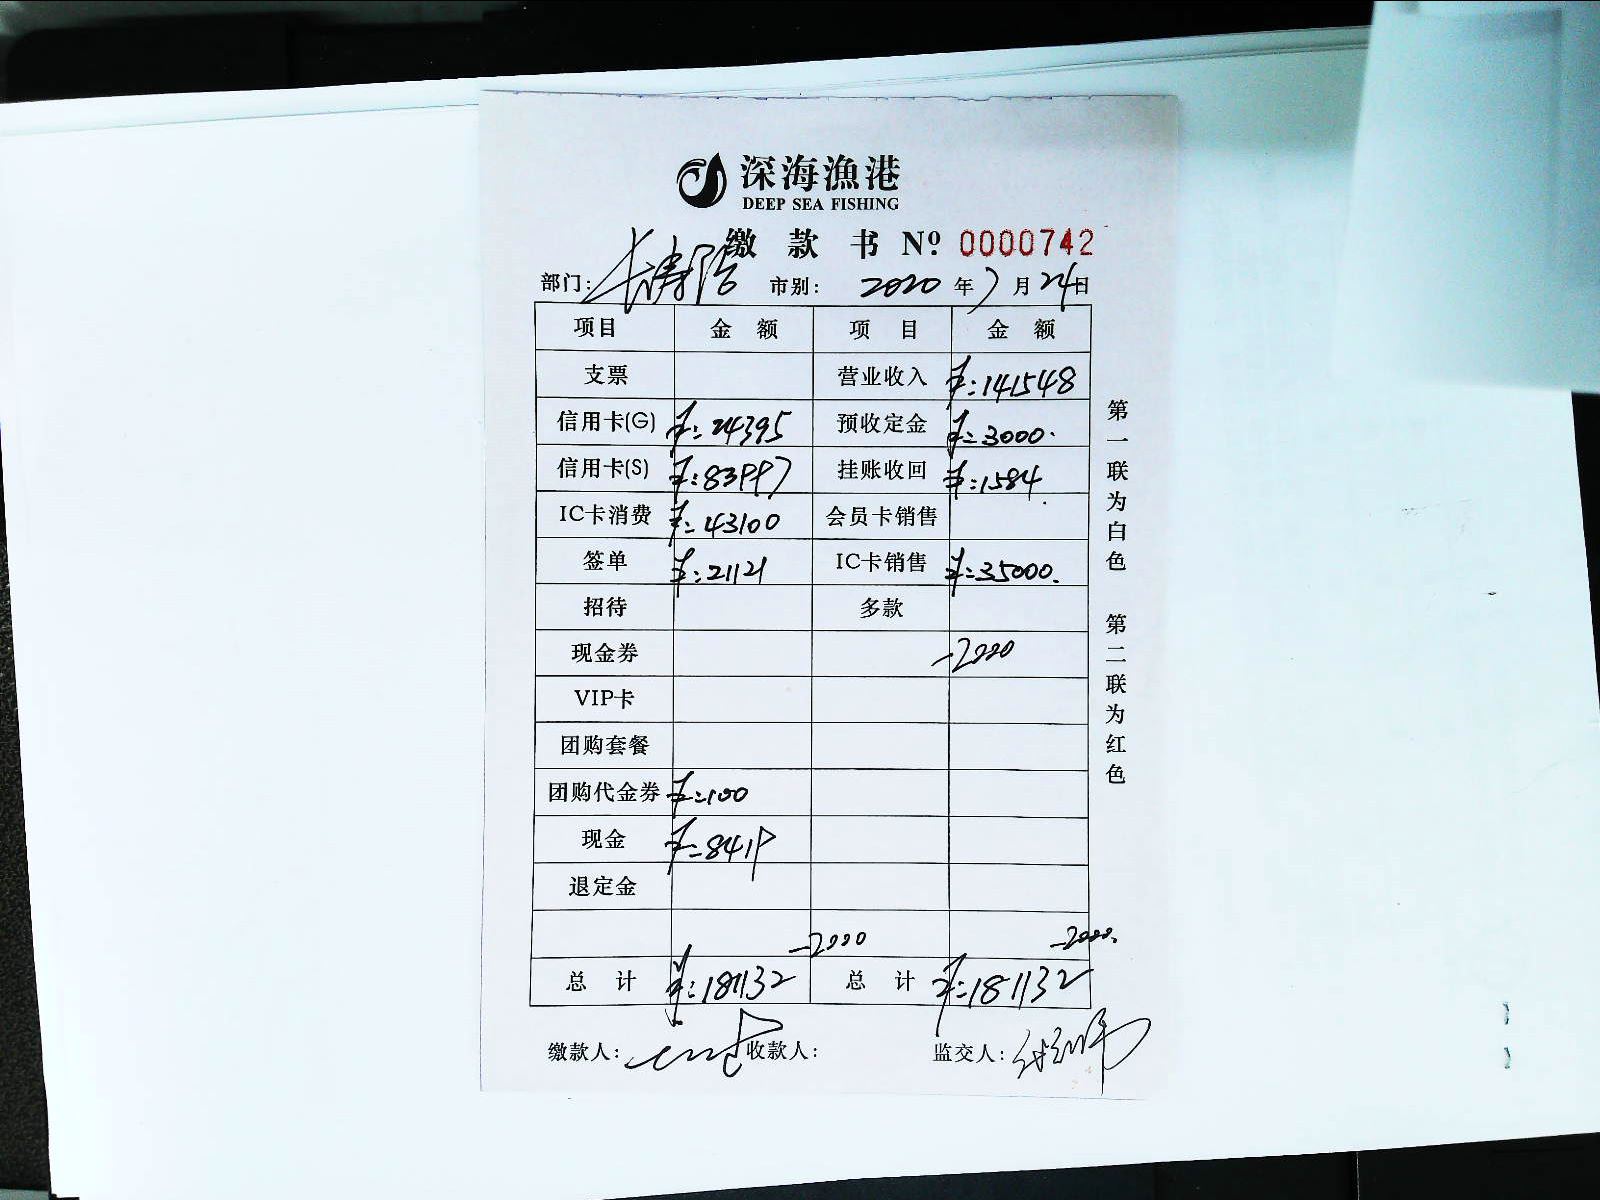 深海漁港
DEEP SEA FISHING
缴款书 Nº 0000742
部门: 长寿路 市别: 2020 年 7 月 24 日
项目 金额 项目 金额
支票 营业收入 ¥:141548
信用卡(G) ¥:24395 预收定金 ¥:3000.
信用卡(S) ¥:83997 挂账收回 ¥:1584.
IC卡消费 ¥:43100 会员卡销售
签单 ¥:21121 IC卡销售 ¥:35000.
招待 多款
现金券 -2000
VIP卡
团购套餐
团购代金券 ¥:100
现金 ¥:8419
退定金
-2000 -2000.
总计 ¥:181132 总计 ¥:181132
缴款人: 收款人: 监交人:
第一联为白色 第二联为红色